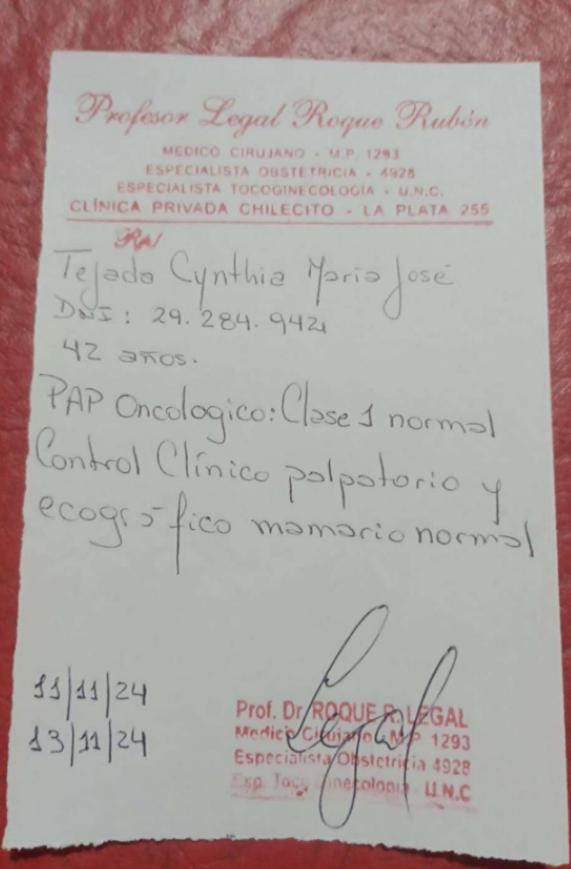 Profesor Legal Roque Rubén
MEDICO CIRUJANO - M.P. 1293
ESPECIALISTA OBSTETRICIA - 4928
ESPECIALISTA TOCOGINECOLOGÍA - U.N.C.
CLÍNICA PRIVADA CHILECITO - LA PLATA 255
Rp/
Tejada Cynthia María José
DNI: 29.284.942
42 años.
PAP Oncologico: Clase 1 normal
Control Clínico palpatorio y
ecográfico mamario normal
11/11/24
13/11/24
Prof. Dr. ROQUE R. LEGAL
Medico Cirujano - M.P. 1293
Especialista Obstetricia 4928
Esp. Tocoginecologia - U.N.C
Legal